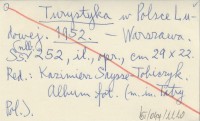 Turystyka w Polsce Lu-
dowej. 1952. — Warszawa.
SS. 252, il., opr., cm 29 x 22.
Red. Kazimierz Saysse-Tobiczyk.
Album fot. (m. in. Tatry
Pol.).